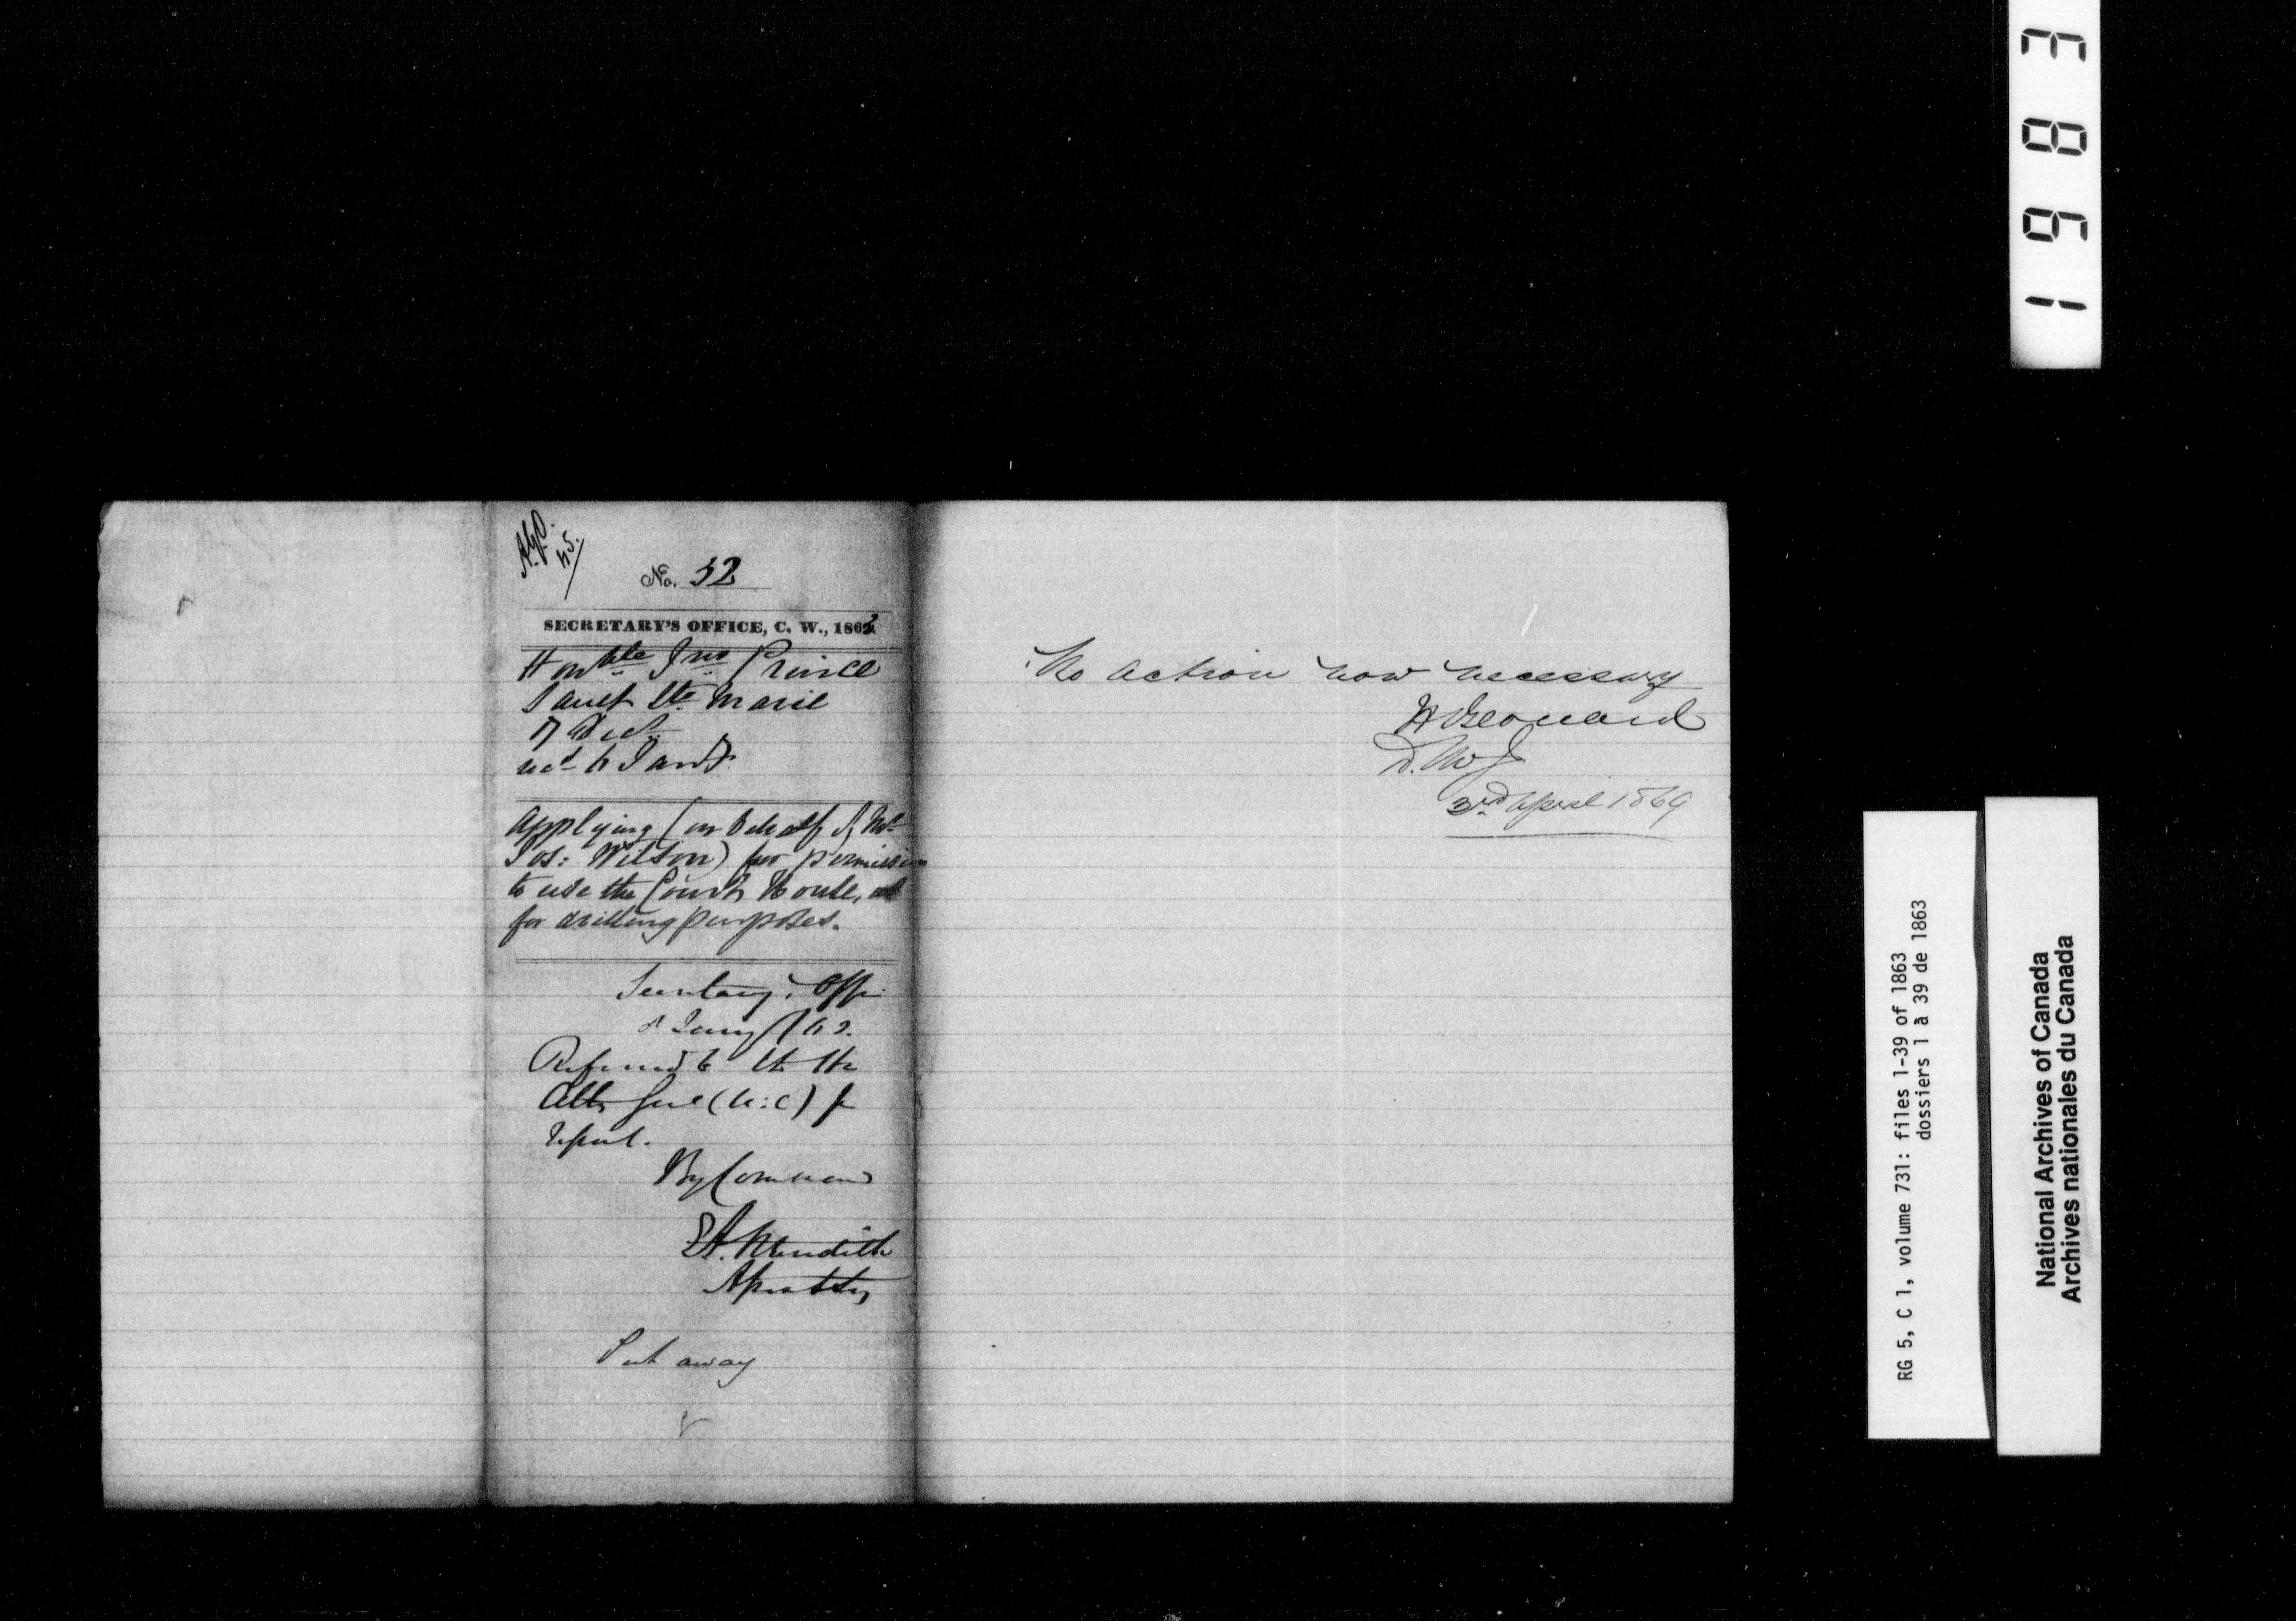 A.G.O.
45.
No. 32
SECRETARY'S OFFICE, C. W., 1863
Honble Jno Prince
Sault Ste. Marie
17 Dect
recd 6 Jany
Applying (on behalf of Mr
Jos: Wilson) for permission
to use the Court House,
for drilling purposes.
Secretary's Offi
Jany /63.
Referred to the
Atty Genl (U:C) for
report.
By Command
EA. Meredith
Asst Secy
Put away
No action now necessary
H Bernard
D. M J
3rd April 1869
1983
RG 5, C 1, volume 731: files 1-39 of 1863
dossiers 1 à 39 de 1863
National Archives of Canada
Archives nationales du Canada